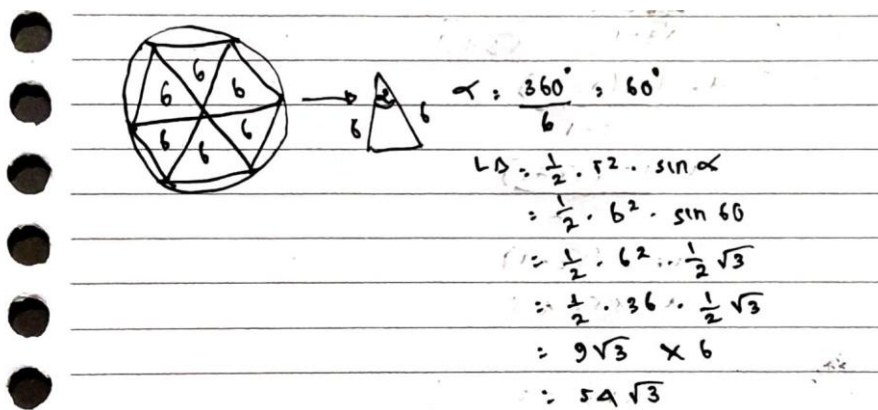 6 6 6 6 6 6
6 6
α = 360° / 6 = 60°
LΔ = 1/2 . r² . sin α
= 1/2 . 6² . sin 60
= 1/2 . 6² . 1/2 √3
= 1/2 . 36 . 1/2 √3
= 9√3 × 6
= 54 √3